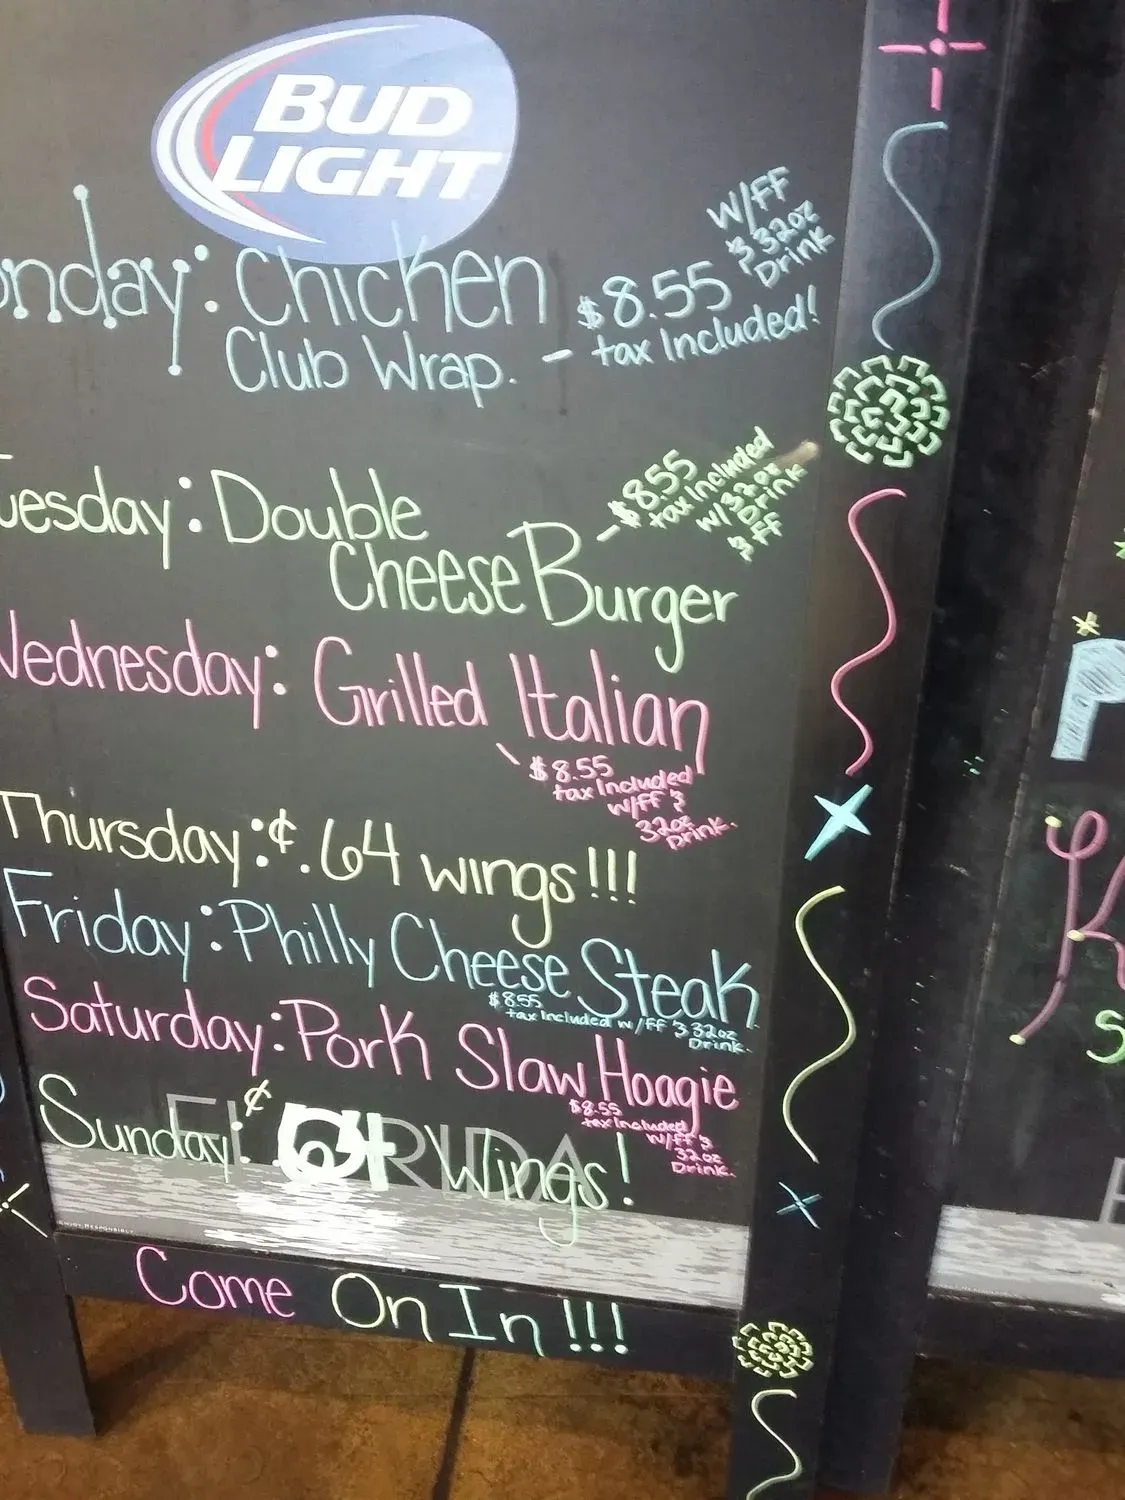 BUD
LIGHT
onday: Chicken
Club Wrap. - $8.55
W/FF
& 32oz
Drink
tax Included!
Tuesday: Double
Cheese Burger
- $8.55
tax Included
W/32oz
Drink
& FF
Wednesday: Grilled Italian
$8.55
tax Included
W/FF &
32oz
Drink.
Thursday: ¢.64 wings!!!
Friday: Philly Cheese Steak
$8.55
tax Included w/FF & 32oz
Drink.
Saturday: Pork Slaw Hoagie
$8.55
tax Included
W/FF &
32oz
Drink.
FLORIDA
Sunday: ¢ .64 Wings!
ENJOY RESPONSIBLY
Come On In!!!
P
K
S